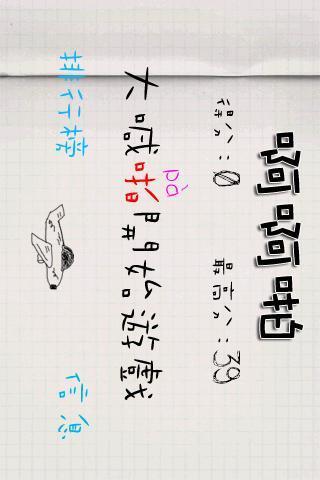 啊啊啪
得分：0 最高分：39
pà
大喊啪開始游戲
排行榜 信息